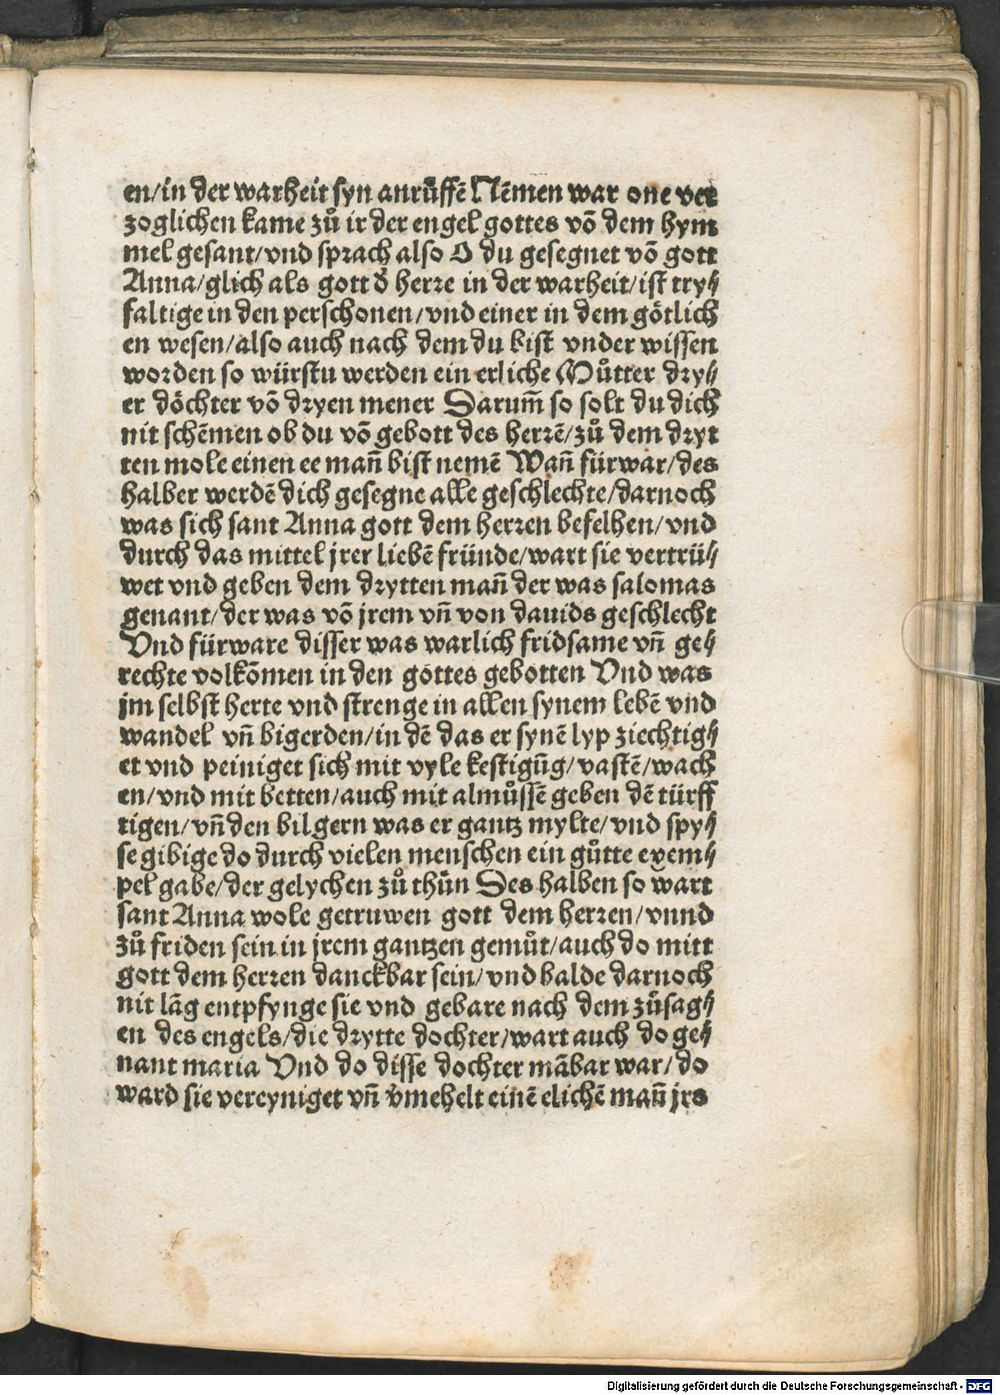 en/in der warheit syn anrůffē Nēmen war one ver
zoglichen kame zů ir der engel gottes vō dem hym
mel gesant/vnd sprach also O du gesegnet vō gott
Anna/glich als gott d̓ herre in der warheit/ist try⸗
faltige in den perschonen/vnd einer in dem götlich
en wesen/also auch nach dem du bist vnder wissen
worden so würstu werden ein erliche Můtter dry⸗
er döchter vō dryen mener Darum̄ so solt du dich
nit schēmen ob du vō gebott des herrē/zů dem dryt
ten mole einen ee man̄ bist nemē Wan̄ fürwar/des
halber werdē dich gesegne alle geschlechte/darnoch
was sich sant Anna gott dem herren befelhen/vnd
durch das mittel jrer liebē fründe/wart sie vertrü⸗
wet vnd geben dem drytten man̄ der was salomas
genant/der was vō jrem vn̄ von dauids geschlecht
Vnd fürware disser was warlich fridsame vn̄ ge⸗
rechte volkōmen in den gottes gebotten Vnd was
jm selbst herte vnd strenge in allen synem lebē vnd
wandel vn̄ bigerden/in dē das er synē lyp ziechtig⸗
et vnd peiniget sich mit vyle kestigūg/vastē/wach
en/vnd mit betten/auch mit almůssē geben dē türff
tigen/vn̄ den bilgern was er gantz mylte/vnd spy⸗
se gibige do durch vielen menschen ein gůtte exem⸗
pel gabe/der gelychen zů thůn Des halben so wart
sant Anna wole getruwen gott dem herren/vnnd
zů friden sein in jrem gantzen gemůt/auch do mitt
gott dem herren danckbar sein/vnd balde darnoch
nit lāg entpfynge sie vnd gebare nach dem zůsag⸗
en des engels/die drytte dochter/wart auch do ge⸗
nant maria Vnd do disse dochter mābar war/do
ward sie vereyniget vn̄ v̓mehelt einē elichē man̄ jrs
Digitalisierung gefördert durch die Deutsche Forschungsgemeinschaft - DFG